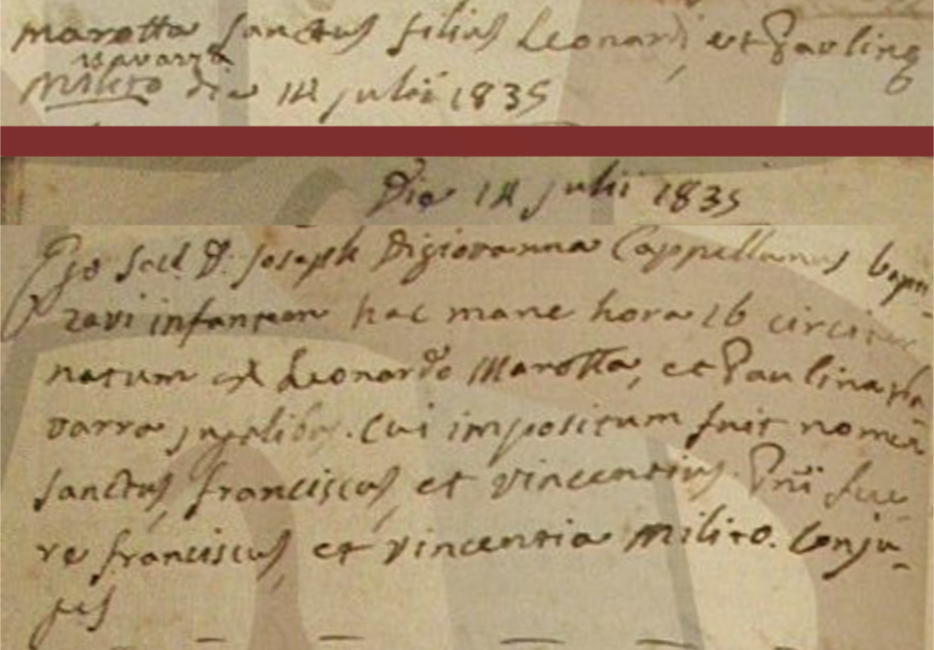 Marotta Sanctus filius Leonardi et Paulina
Navarra
Milito die 14 julii 1835
Die 14 julii 1835
Ego Sacd D. Joseph Digiovanna Cappellanus bapti
zavi infantem hac mane hora 16 circiter
natum ex Leonardo Marotta, et Paulina Na
varra jugalibus. Cui impositum fuit nomen
Sanctus, Franciscus, et Vincentius. Pni fue
re Franciscus, et Vincentia Milito. Conju-
ges